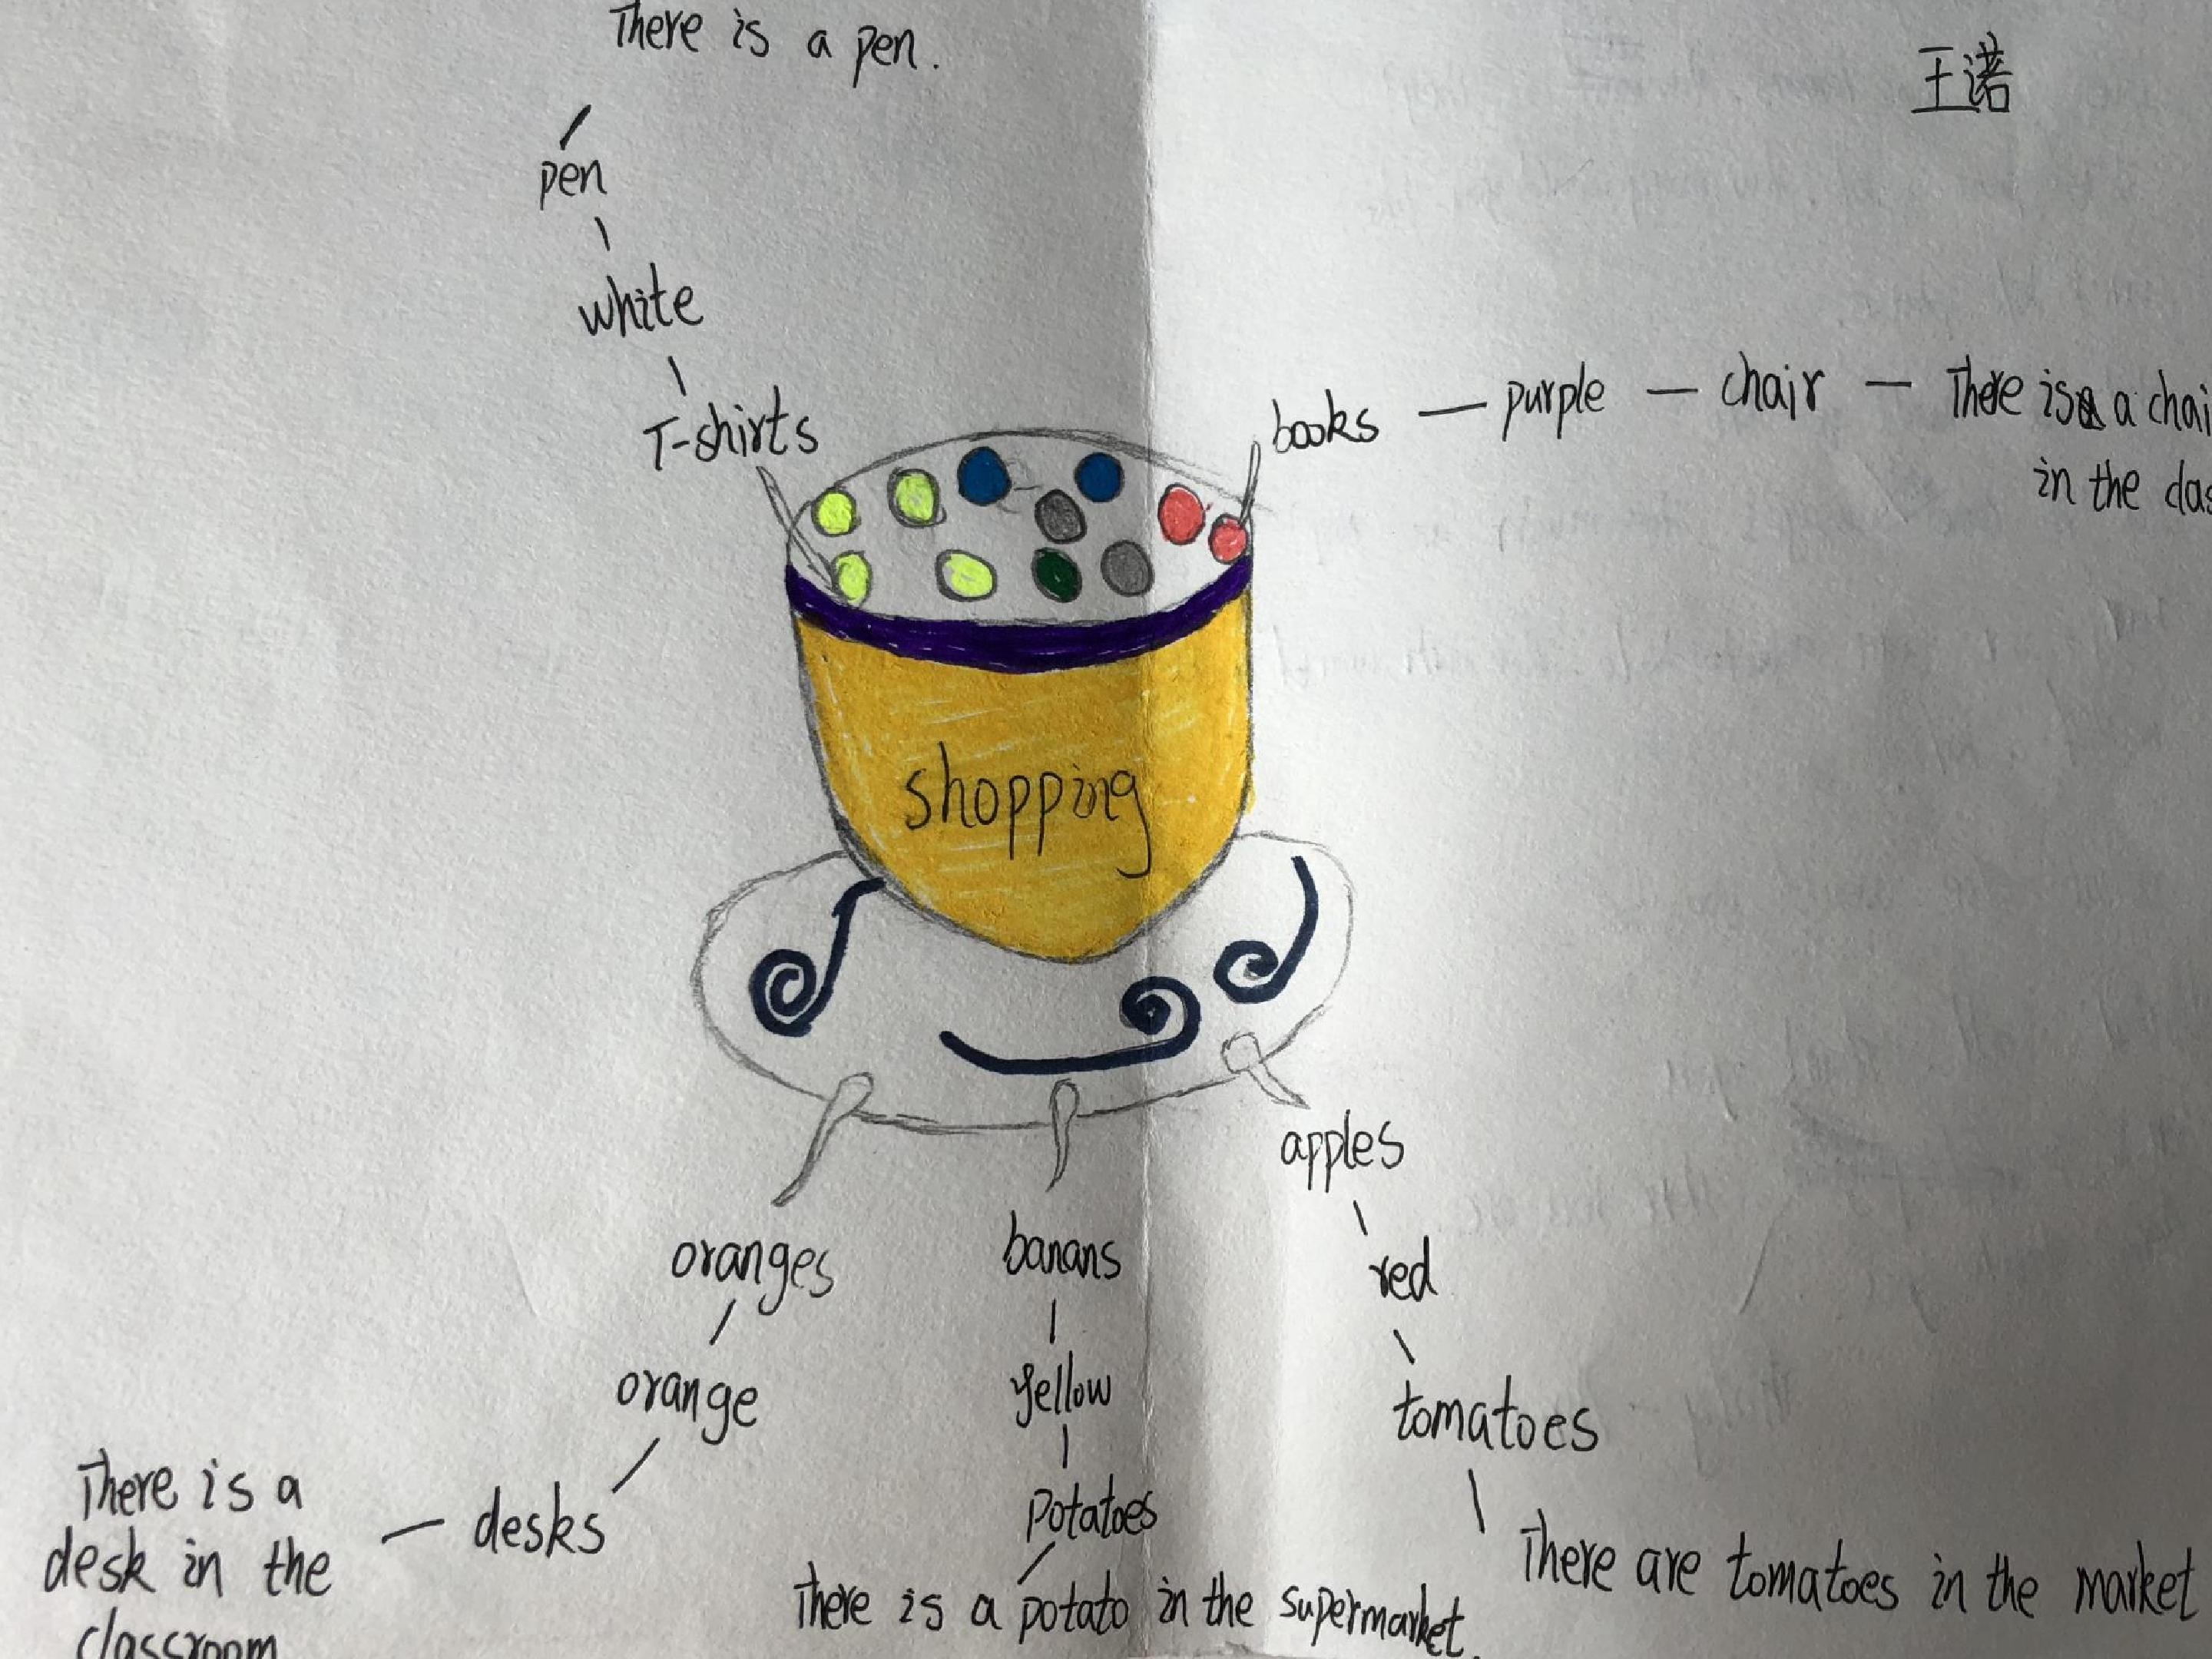 There is a pen.
王诺
pen
white
T-shirts
books — purple — chair — There is a chai
in the clas
shopping
apples
oranges
banans
red
orange
yellow
tomatoes
There is a
desk in the
classroom
desks
potatoes
There is a potato in the supermarket.
There are tomatoes in the market